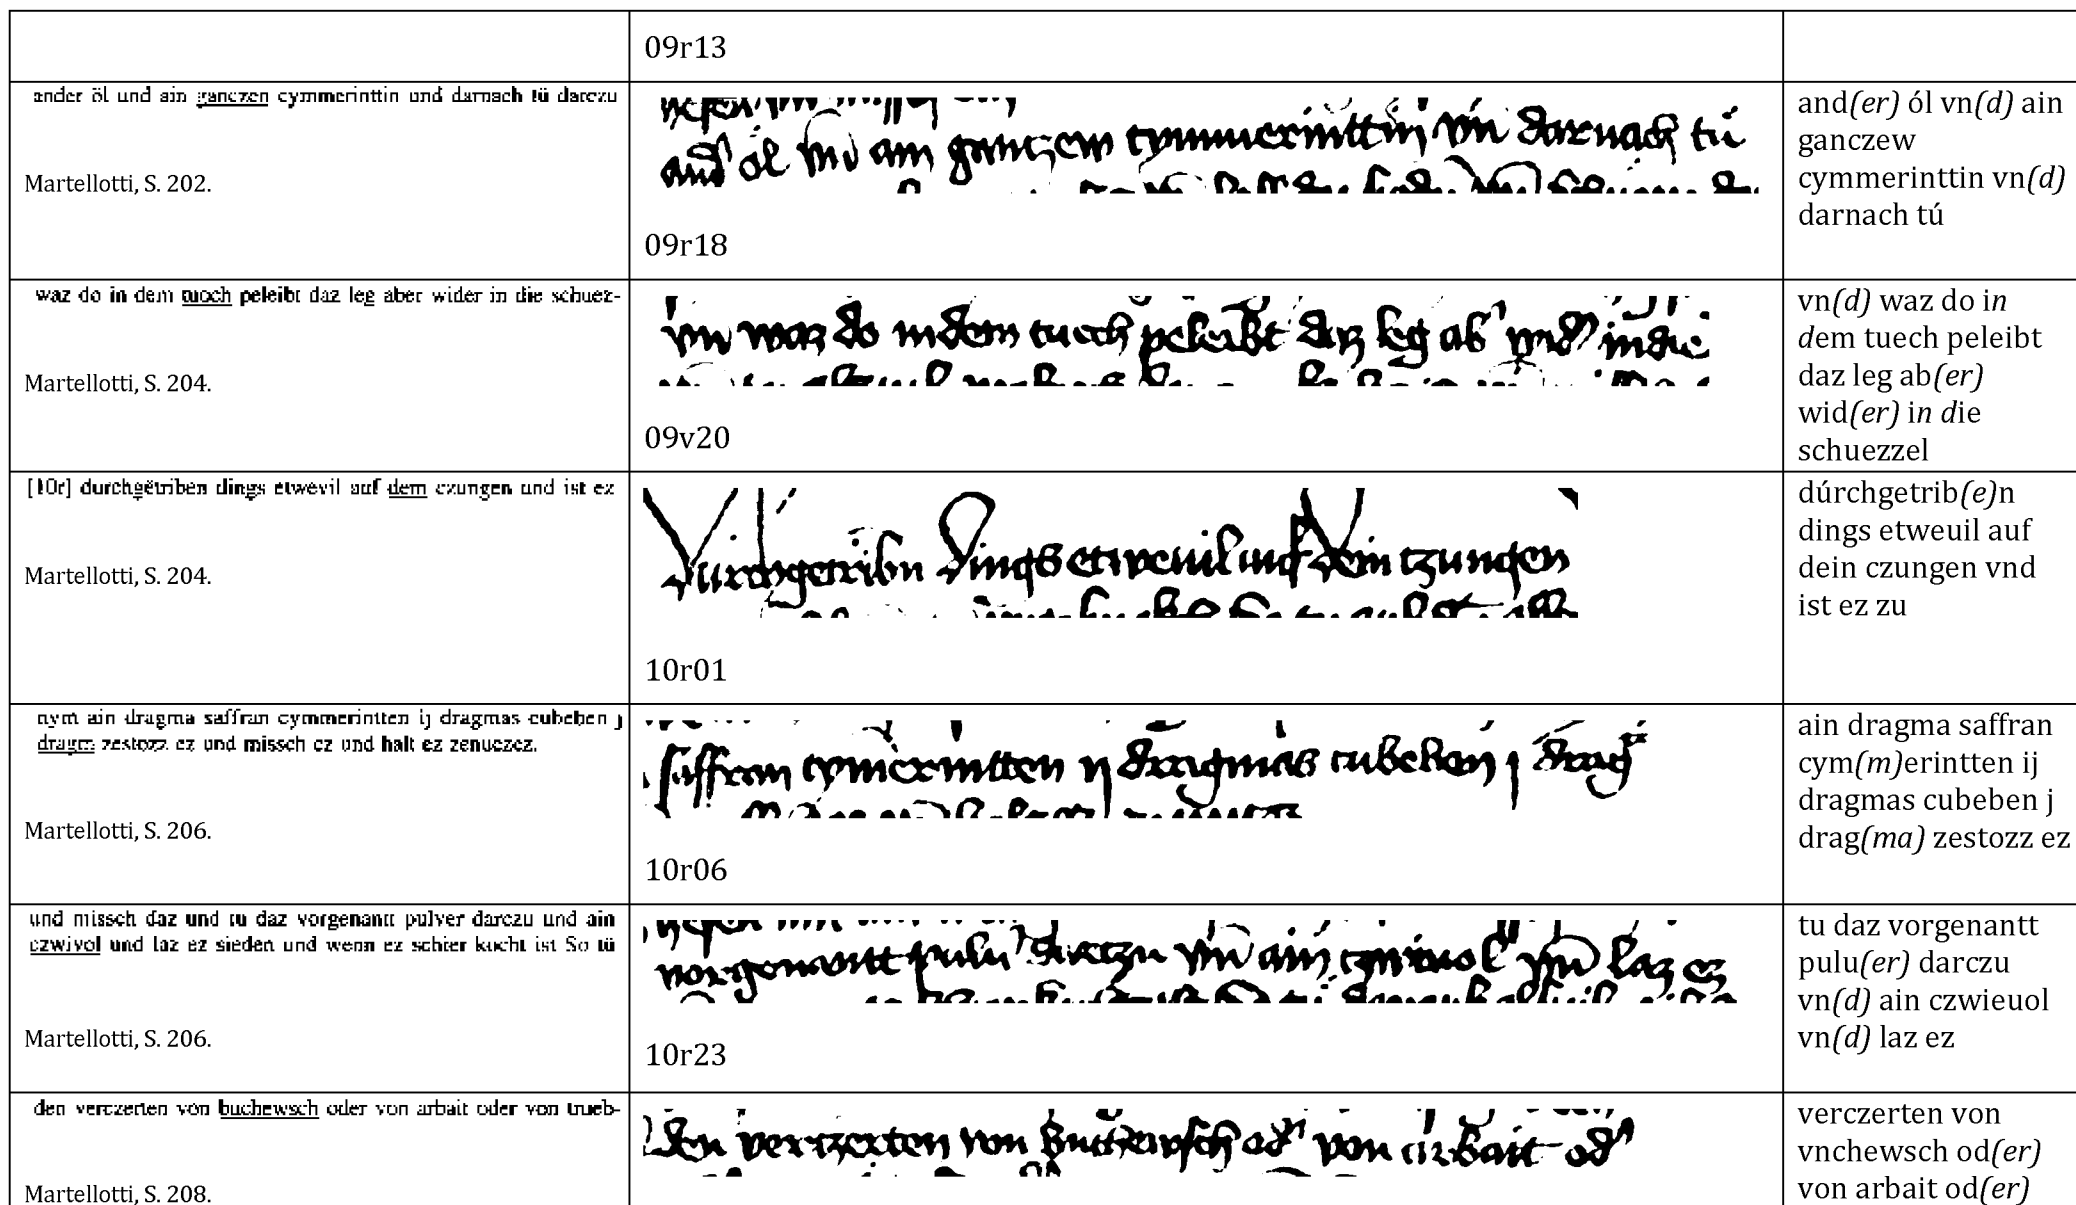 09r13
ander öl und ain ganczen cymmerinttin und darnach tü darczu
Martellotti, S. 202.
and öl vn ain ganczew cymmerinttin vn darnach tú
09r18
and(er) ól vn(d) ain
ganczew
cymmerinttin vn(d)
darnach tú
waz do in dem tuoch peleibt daz leg aber wider in die schuez-
Martellotti, S. 204.
vn waz do indem tuech peleibt daz leg ab wid indie
09v20
vn(d) waz do in
dem tuech peleibt
daz leg ab(er)
wid(er) in die
schuezzel
[10r] durchgëtriben dings etwevil auf dem czungen und ist ez
Martellotti, S. 204.
durchgetribn dings etweuil auf dein czungen
10r01
dúrchgetrib(e)n
dings etweuil auf
dein czungen vnd
ist ez zu
nym ain dragma saffran cymmerintten ij dragmas cubeben j
dragm zestozz ez und missch ez und halt ez zenuczez.
Martellotti, S. 206.
saffran cymerintten ij dragmas cubeben j drag
10r06
ain dragma saffran
cym(m)erintten ij
dragmas cubeben j
drag(ma) zestozz ez
und missch daz und tu daz vorgenantt pulver darczu und ain
czwivol und laz ez sieden und wenn ez schier kocht ist So tü
Martellotti, S. 206.
vorgenantt pulu darczu vn ain czwieuol vn laz ez
10r23
tu daz vorgenantt
pulu(er) darczu
vn(d) ain czwieuol
vn(d) laz ez
den verczerten von buchewsch oder von arbait oder von trueb-
Martellotti, S. 208.
den verczerten von vnchewsch od von arbait od
verczerten von
vnchewsch od(er)
von arbait od(er)